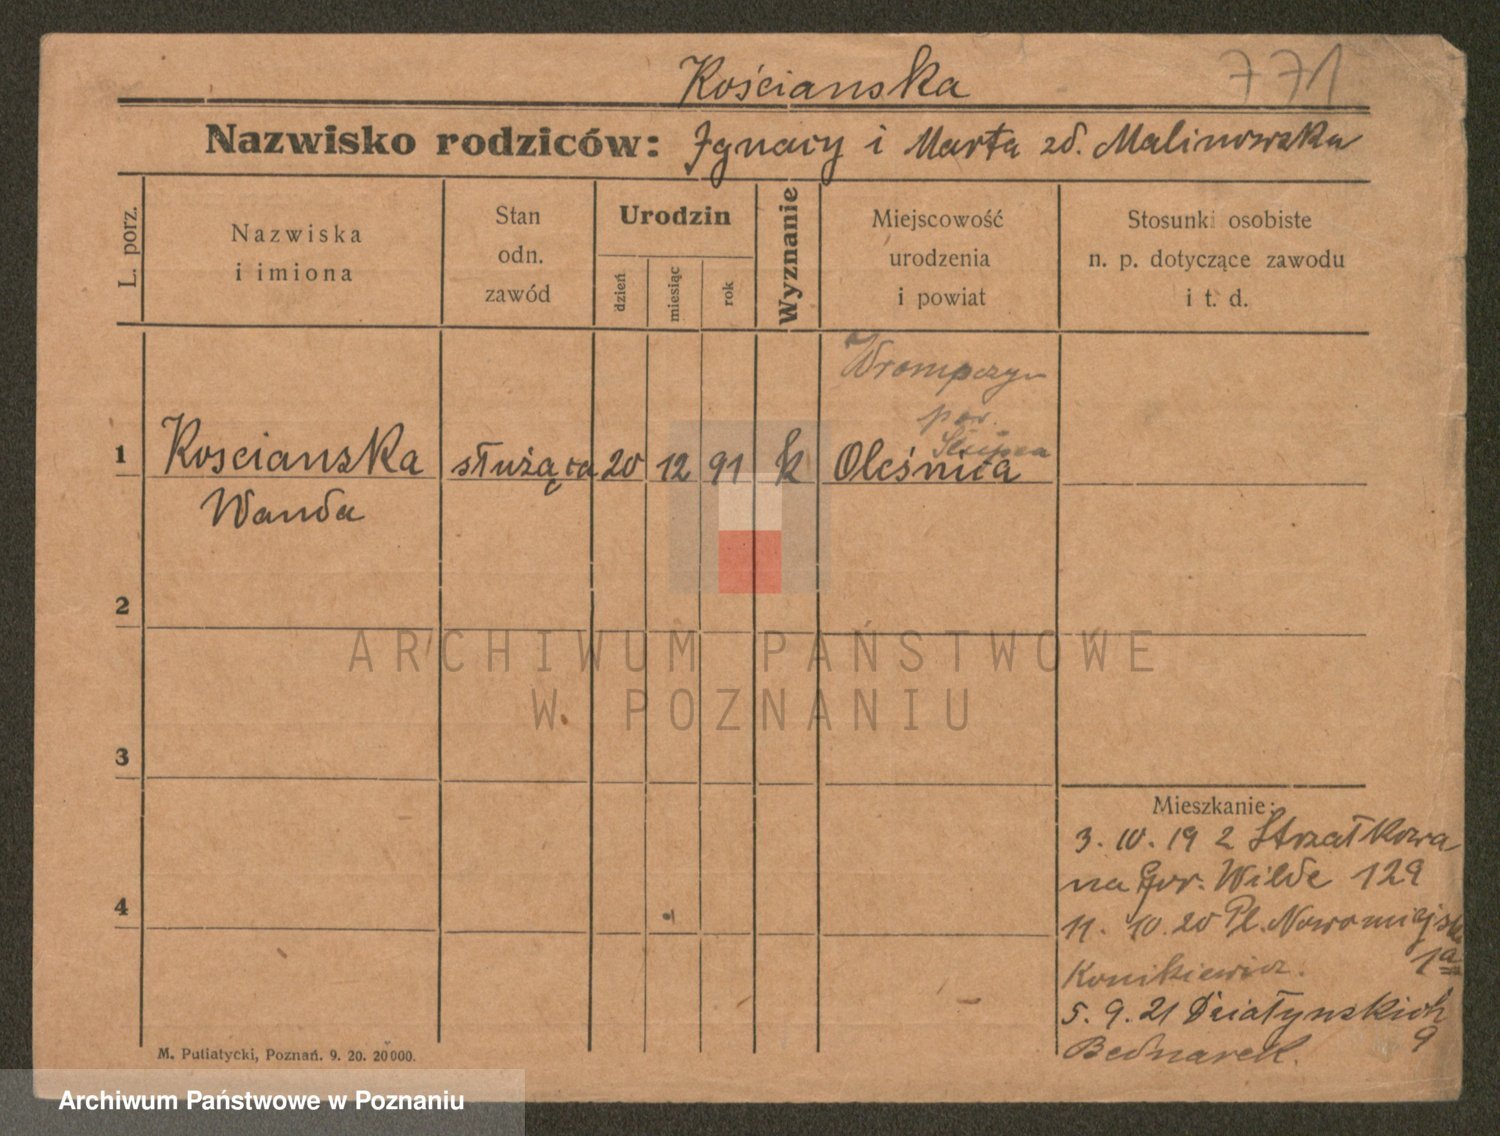 Kościanska
771
Nazwisko rodziców: Ignacy i Marta zd. Malinowska
L. porz.
Nazwiska
i imiona
Stan
odn.
zawód
Urodzin
dzień
miesiąc
rok
Wyznanie
Miejscowość
urodzenia
i powiat
Stosunki osobiste
n. p. dotyczące zawodu
i t. d.
Wrompczyn
pow.
Słupca
1 Koscianska służąca 20 12 91 k Oleśnica
Wanda
2
3
4
Mieszkanie:
3. 10. 19 z Strzałkowa
na Gór. Wilde 129
11. 10. 20 Pl. Nowomiejsk
Konikiewicz. 1a
5. 9. 21 Działynskich
Bednarek. 9
M. Putiatycki, Poznań. 9. 20. 20000.
ARCHIWUM PAŃSTWOWE
W POZNANIU
Archiwum Państwowe w Poznaniu